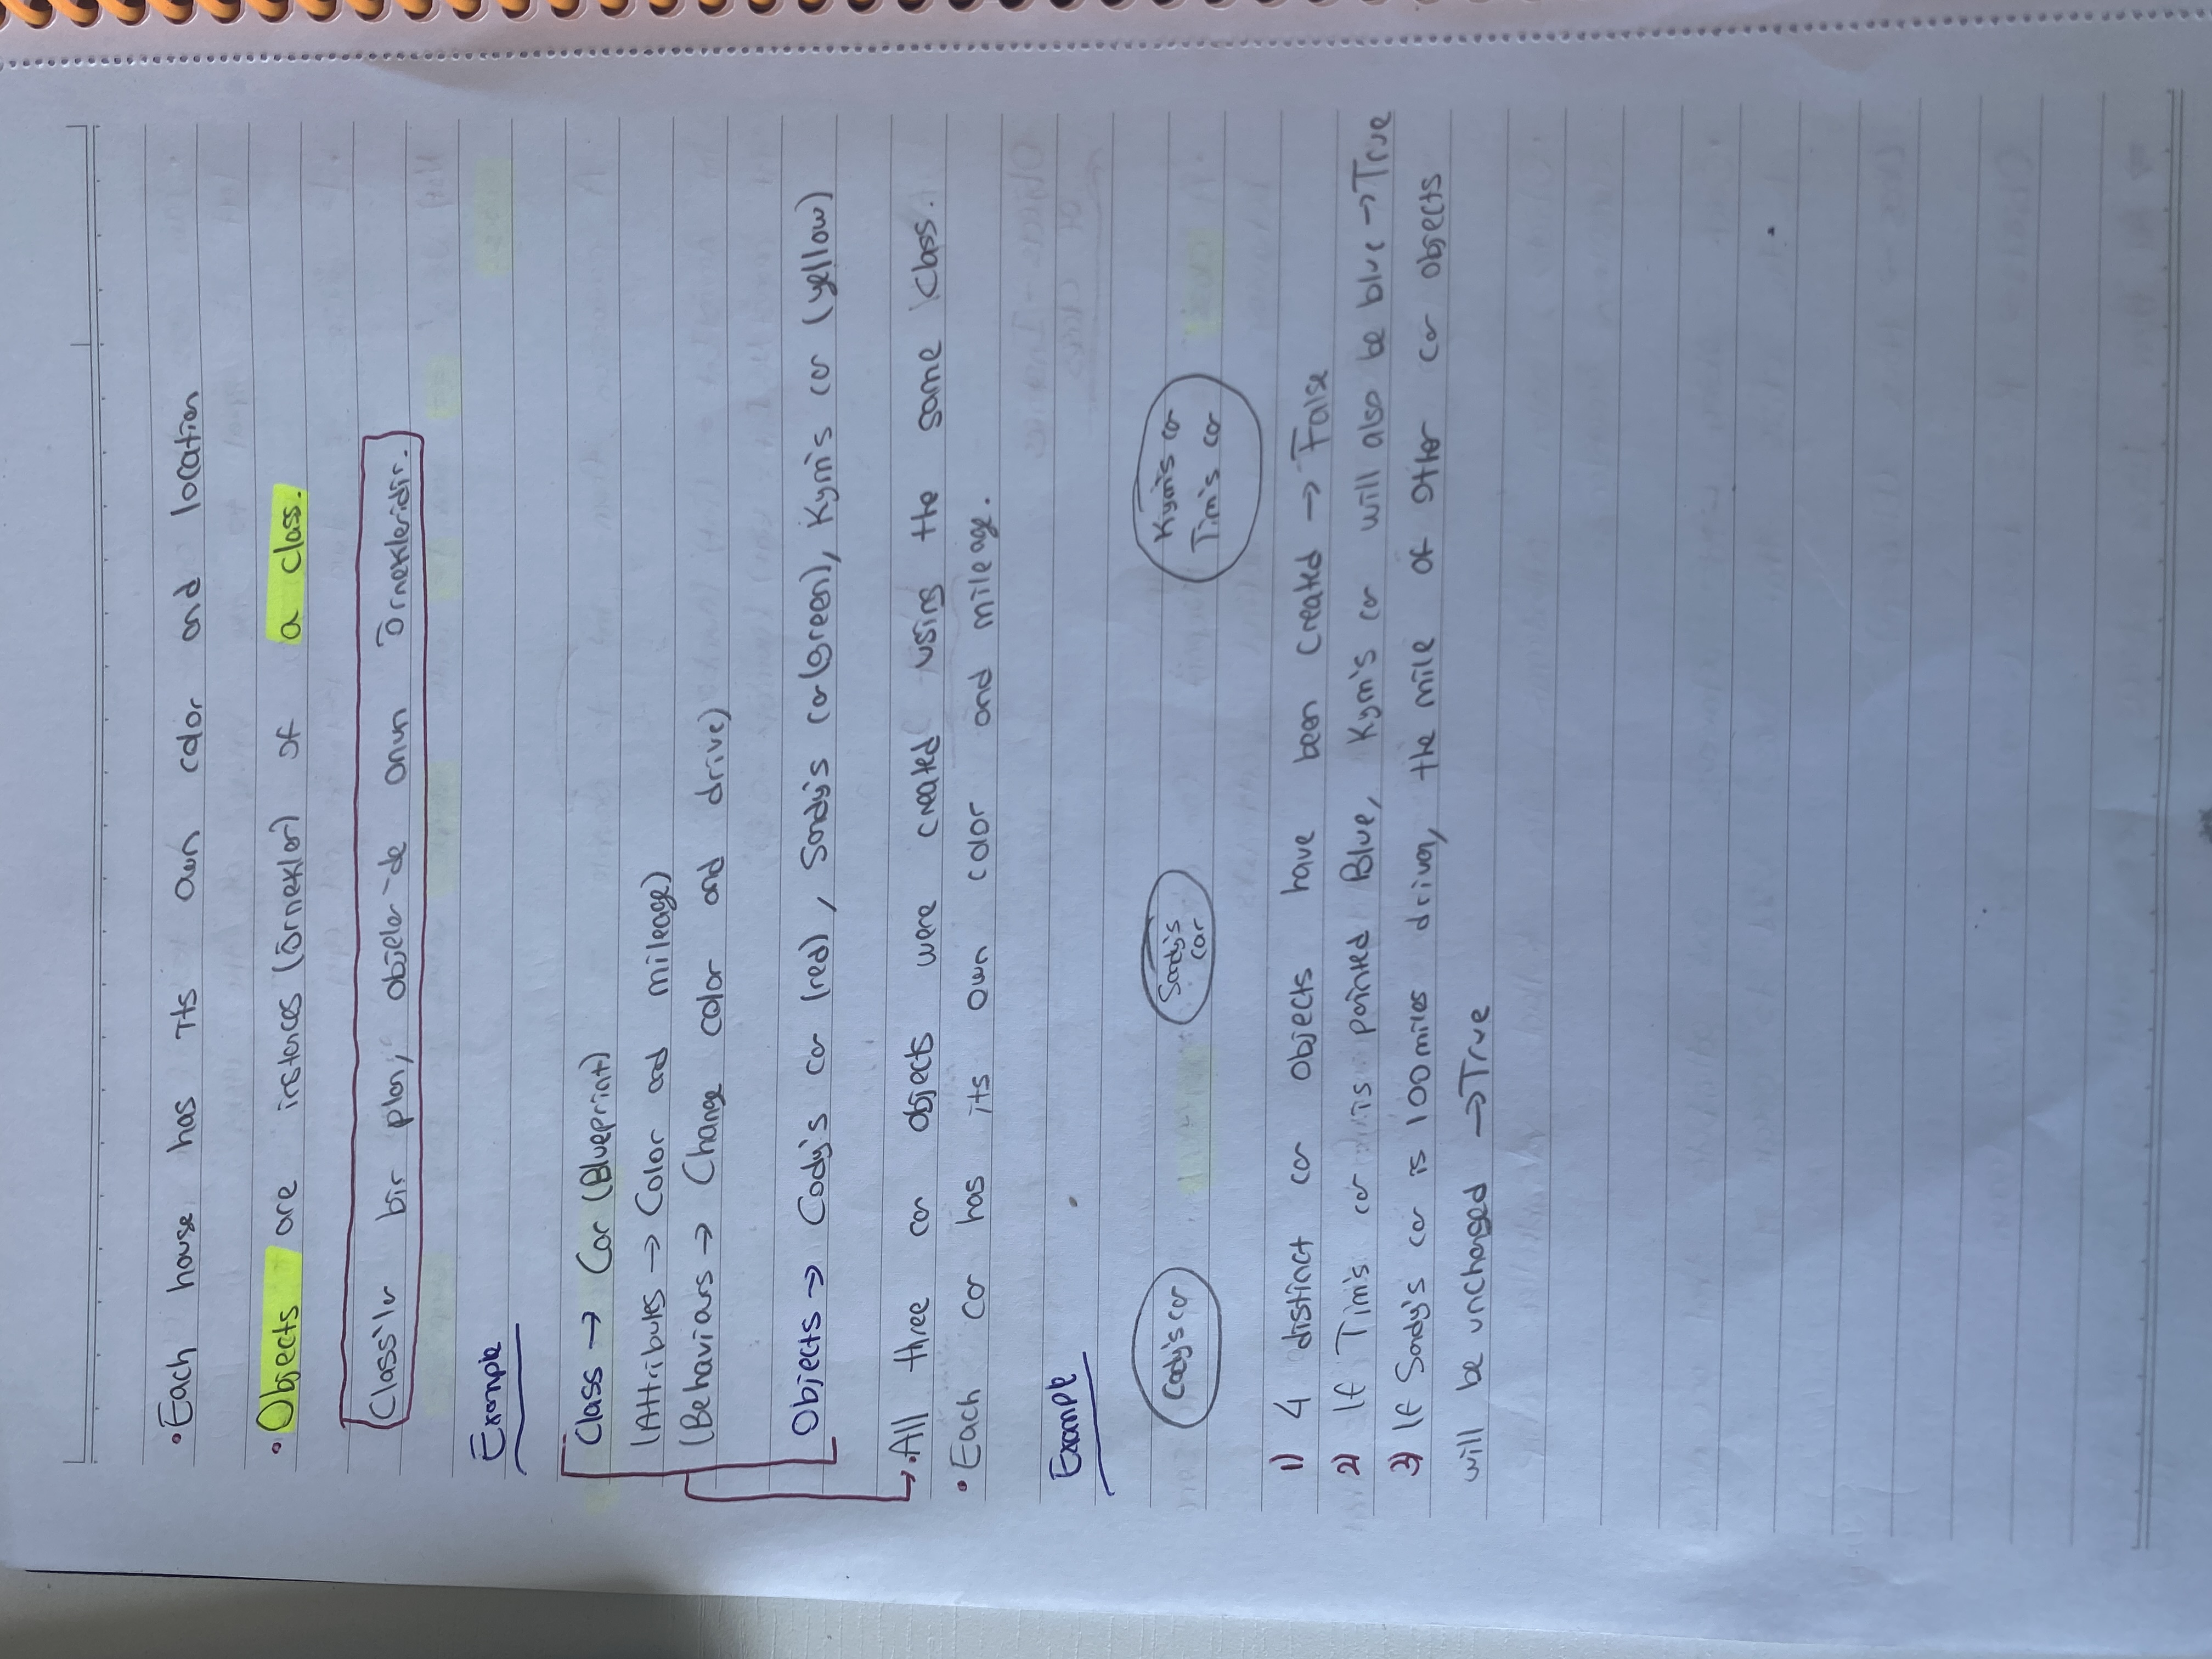 •Each house has its own color and location
•Objects are instances (Örnekler) of a class.
Class'lar bir plan, objeler de onun örnekleridir.
Example
Class → Car (Blueprint)
(Attributes → Color and mileage)
(Behaviors → Change color and drive)
Objects → Cody's car (red), Sandy's car (green), Kym's car (yellow)
•All three car objects were created using the same class.
•Each car has its own color and mileage.
Example
Cody's car
Sandy's
car
Kym's car
Tim's car
1) 4 distinct car objects have been created → False
2) If Tim's car is painted Blue, Kym's car will also be blue → True
3) If Sandy's car is 100 miles driven, the mile of other car objects
will be unchanged → True